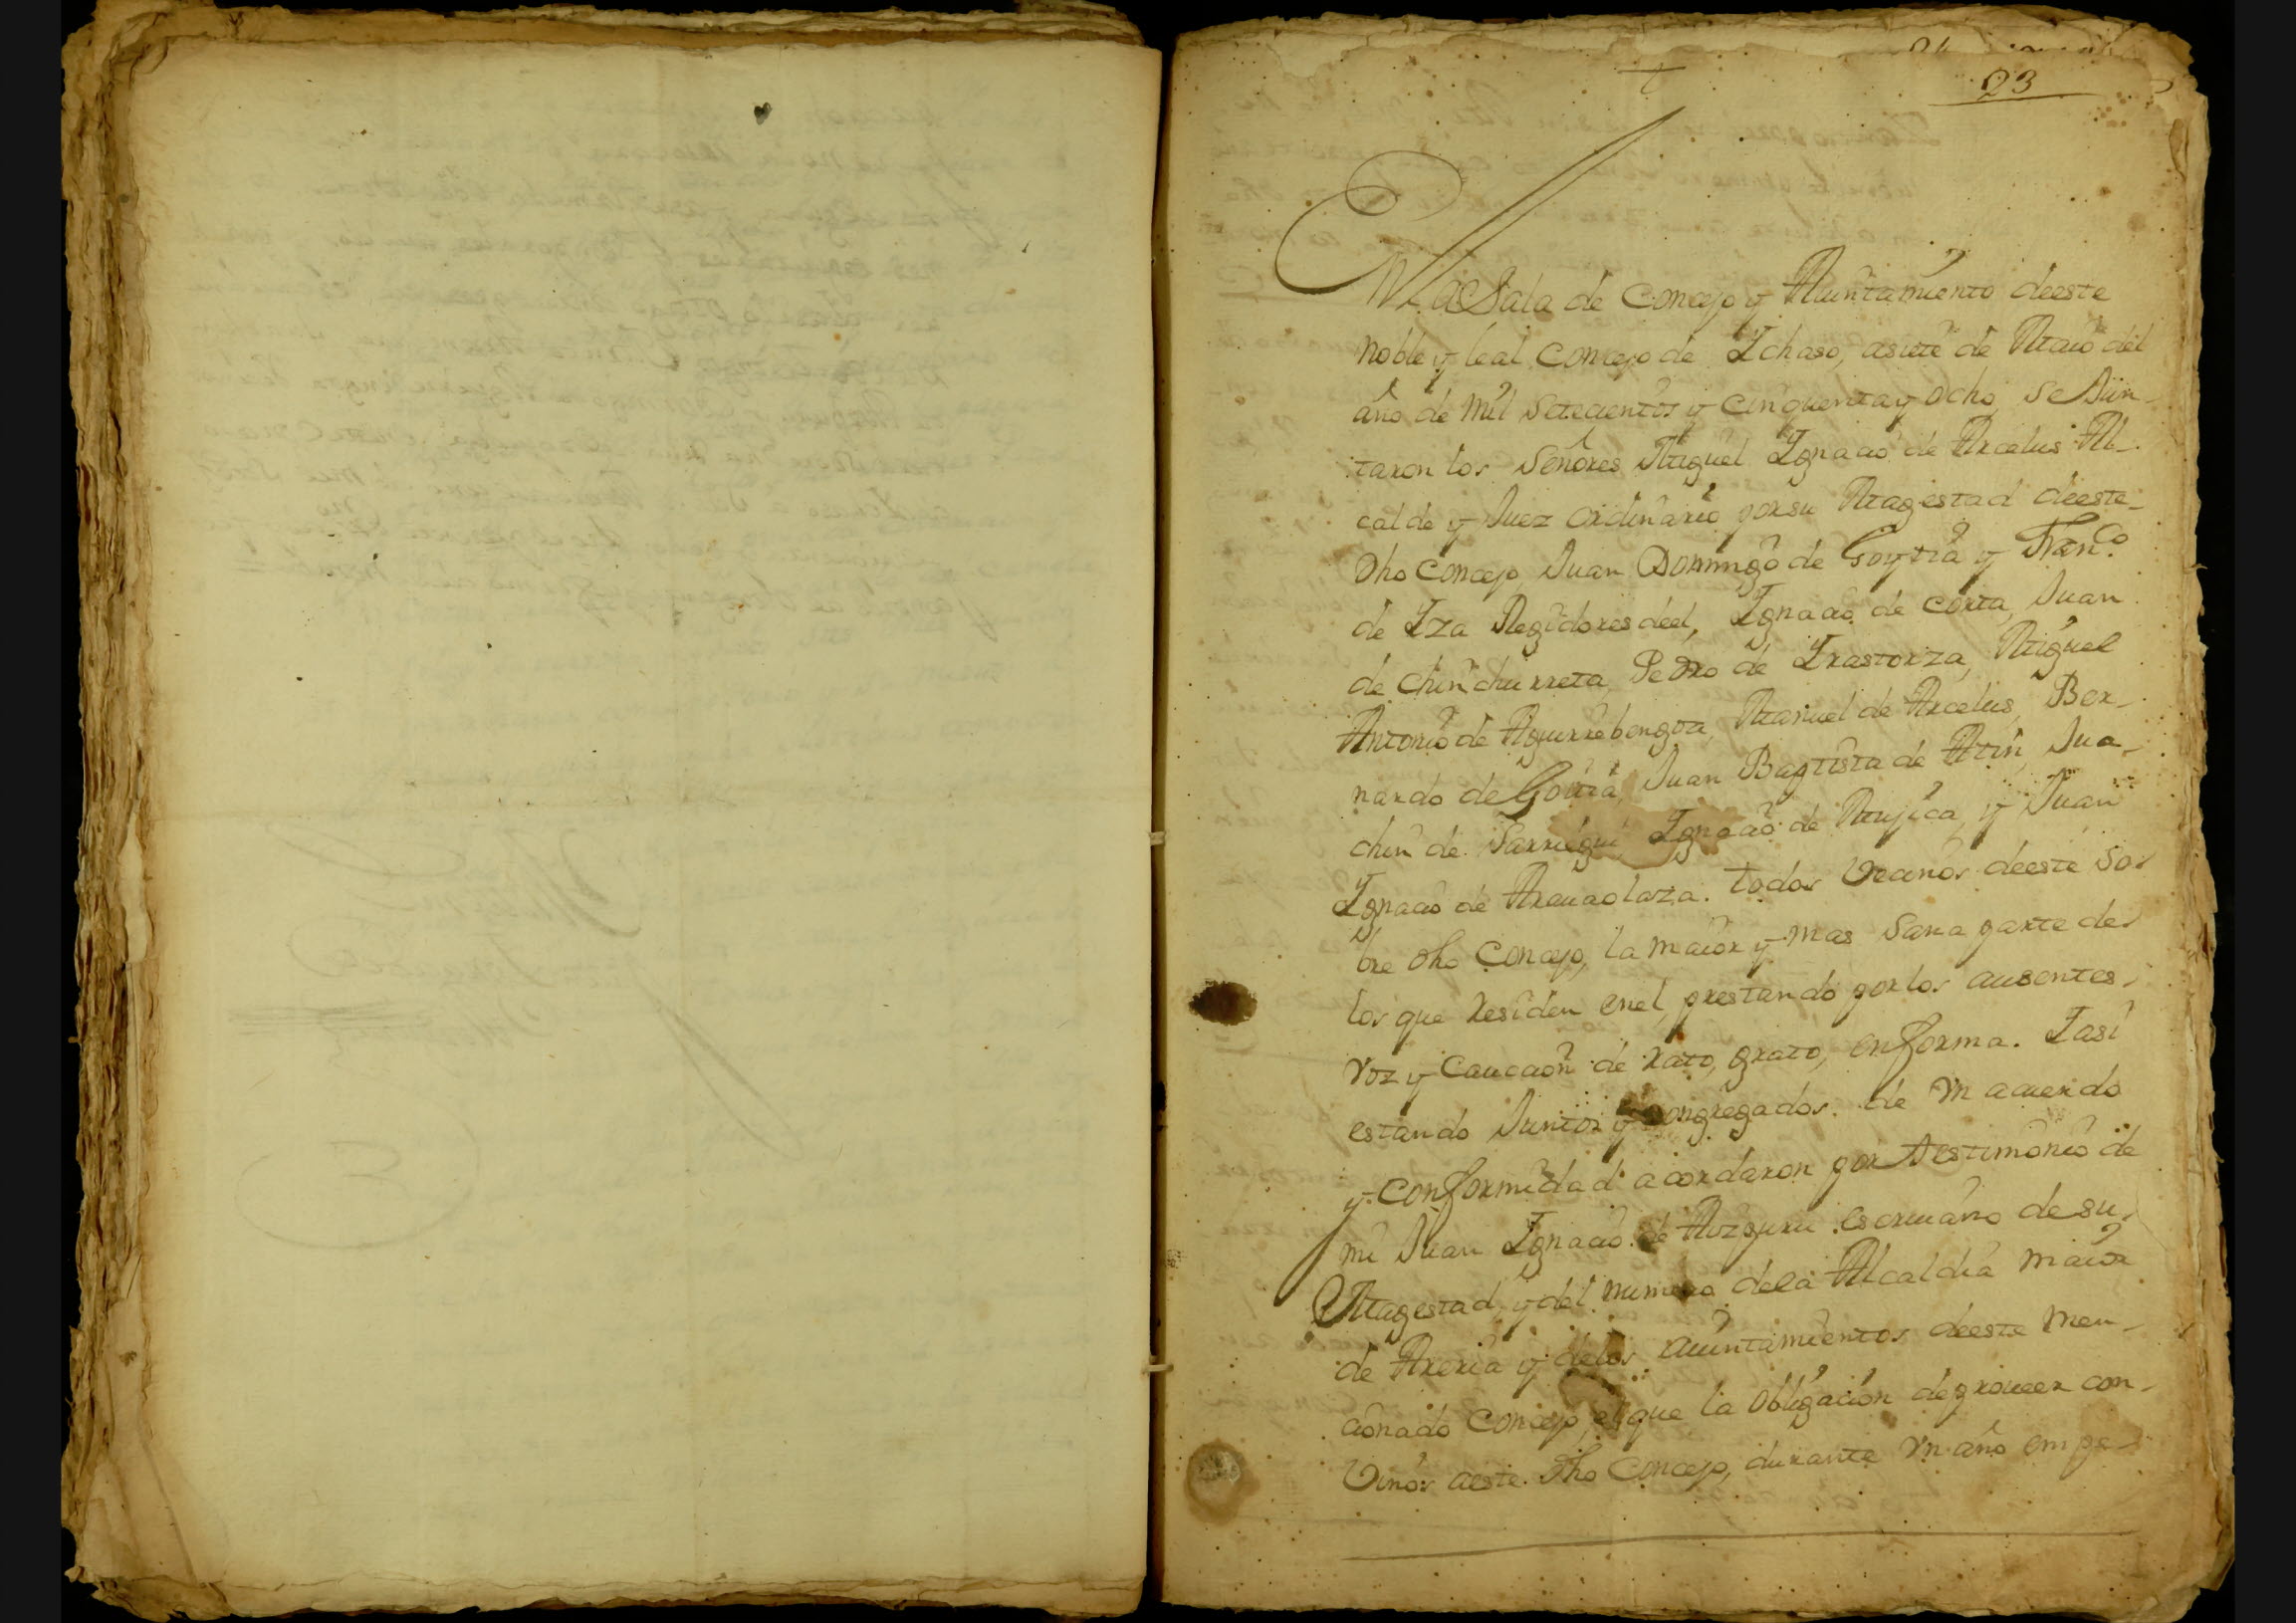 23
En la Sala de Concejo y Aiuntamiento deeste
noble y leal Concejo de Ichaso, asiete de Maio del
año de mil Setecientos y Cinquenta y Ocho, se Iun-
taron los Señores Miguel Ignacio de Arcelus Al-
calde y Iuez Ordinario por su Magestad deeste
dho Concejo, Iuan Domingo de Goytia y Franco
de Iza Regidores deel, Ignacio de Corta, Iuan
de Chinchurreta, Pedro de Irastorza, Miguel
Antonio de Aguirrebengoa, Manuel de Arcelus, Ber-
nardo de Goitia, Iuan Baptista de Atin, Iua-
chin de Sarriegui, Ignacio de Mujica, y Iuan
Ignacio de Arcuaolaza. todos Vecinos deeste So-
bre dho Concejo, la maior y mas Sana parte de
los que Residen enel, prestando por los ausentes
voz y Caucaon de rato, grato, enforma. Iasi
estando Iuntos y Congregados. de Vn acuerdo
y Conformidad acordaron por testimonio de
mi Iuan Ignacio de Aozguru escriuano de su
Magestad, y del numero dela Alcaldia maior
de Areria y delos aiuntamientos deeste men-
cionado Concejo, en que la Obligacion de proueer con
Vinos aeste dho Concejo, durante Vn año empe-